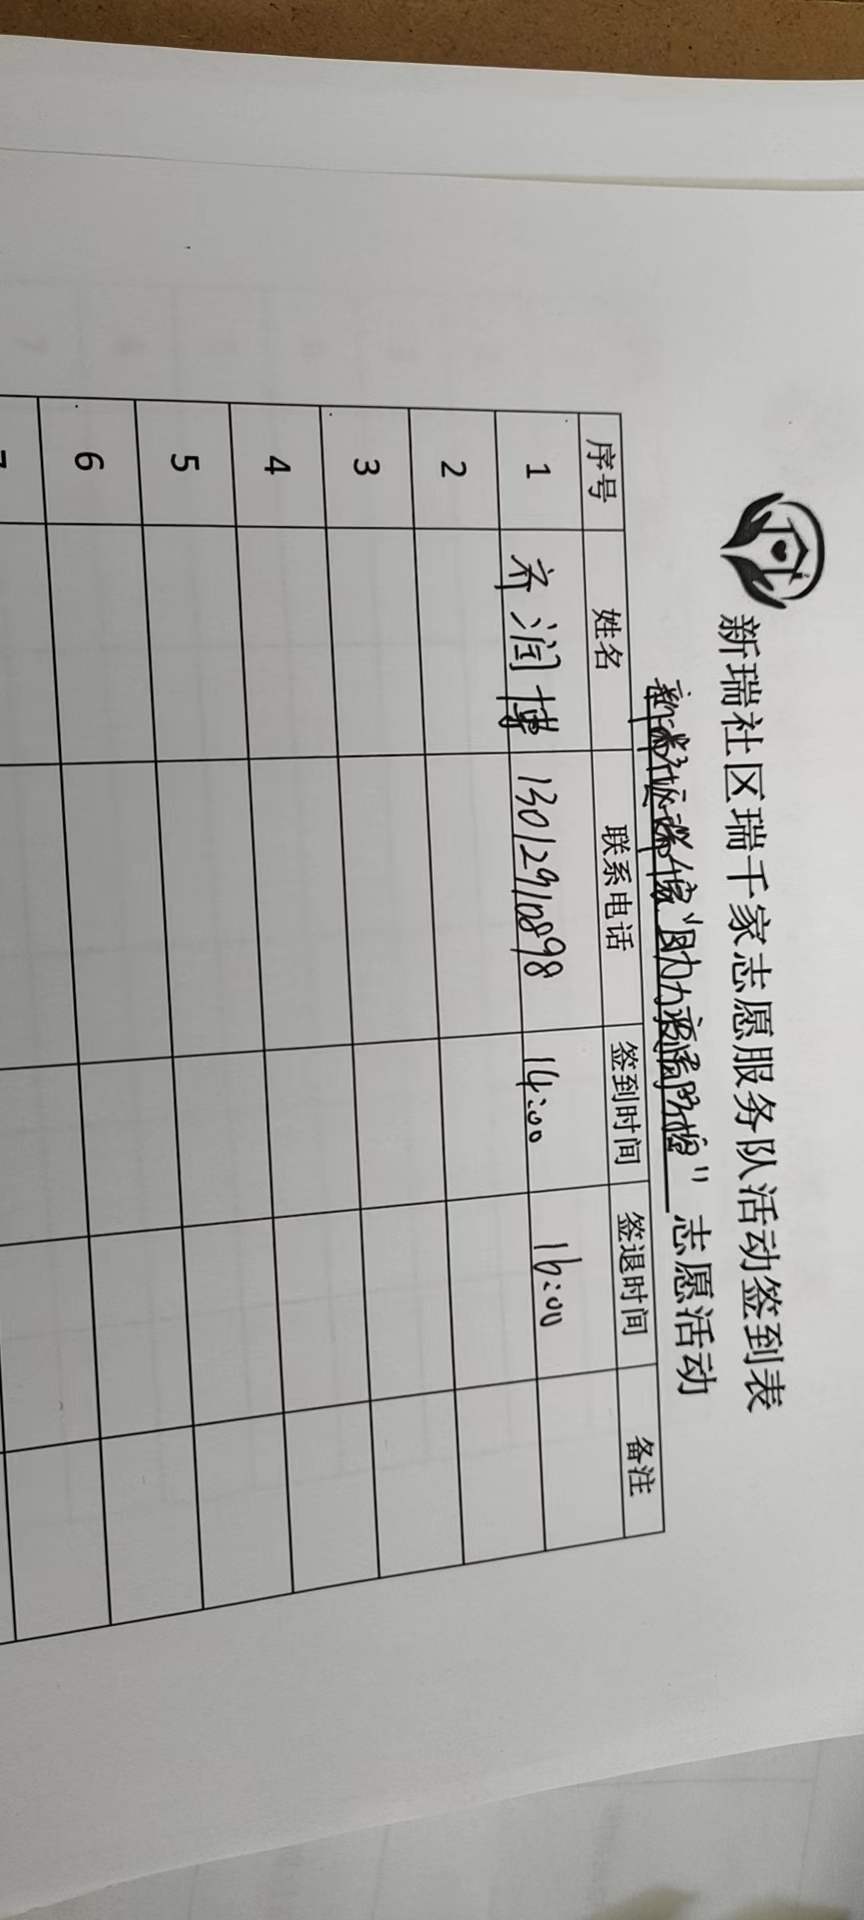 新瑞社区瑞千家志愿服务队活动签到表
新瑞社区瑞千家“助力疫情防控”志愿活动
序号 姓名 联系电话 签到时间 签退时间 备注
1 齐润博 13012910898 14:00 16:00
2
3
4
5
6
7